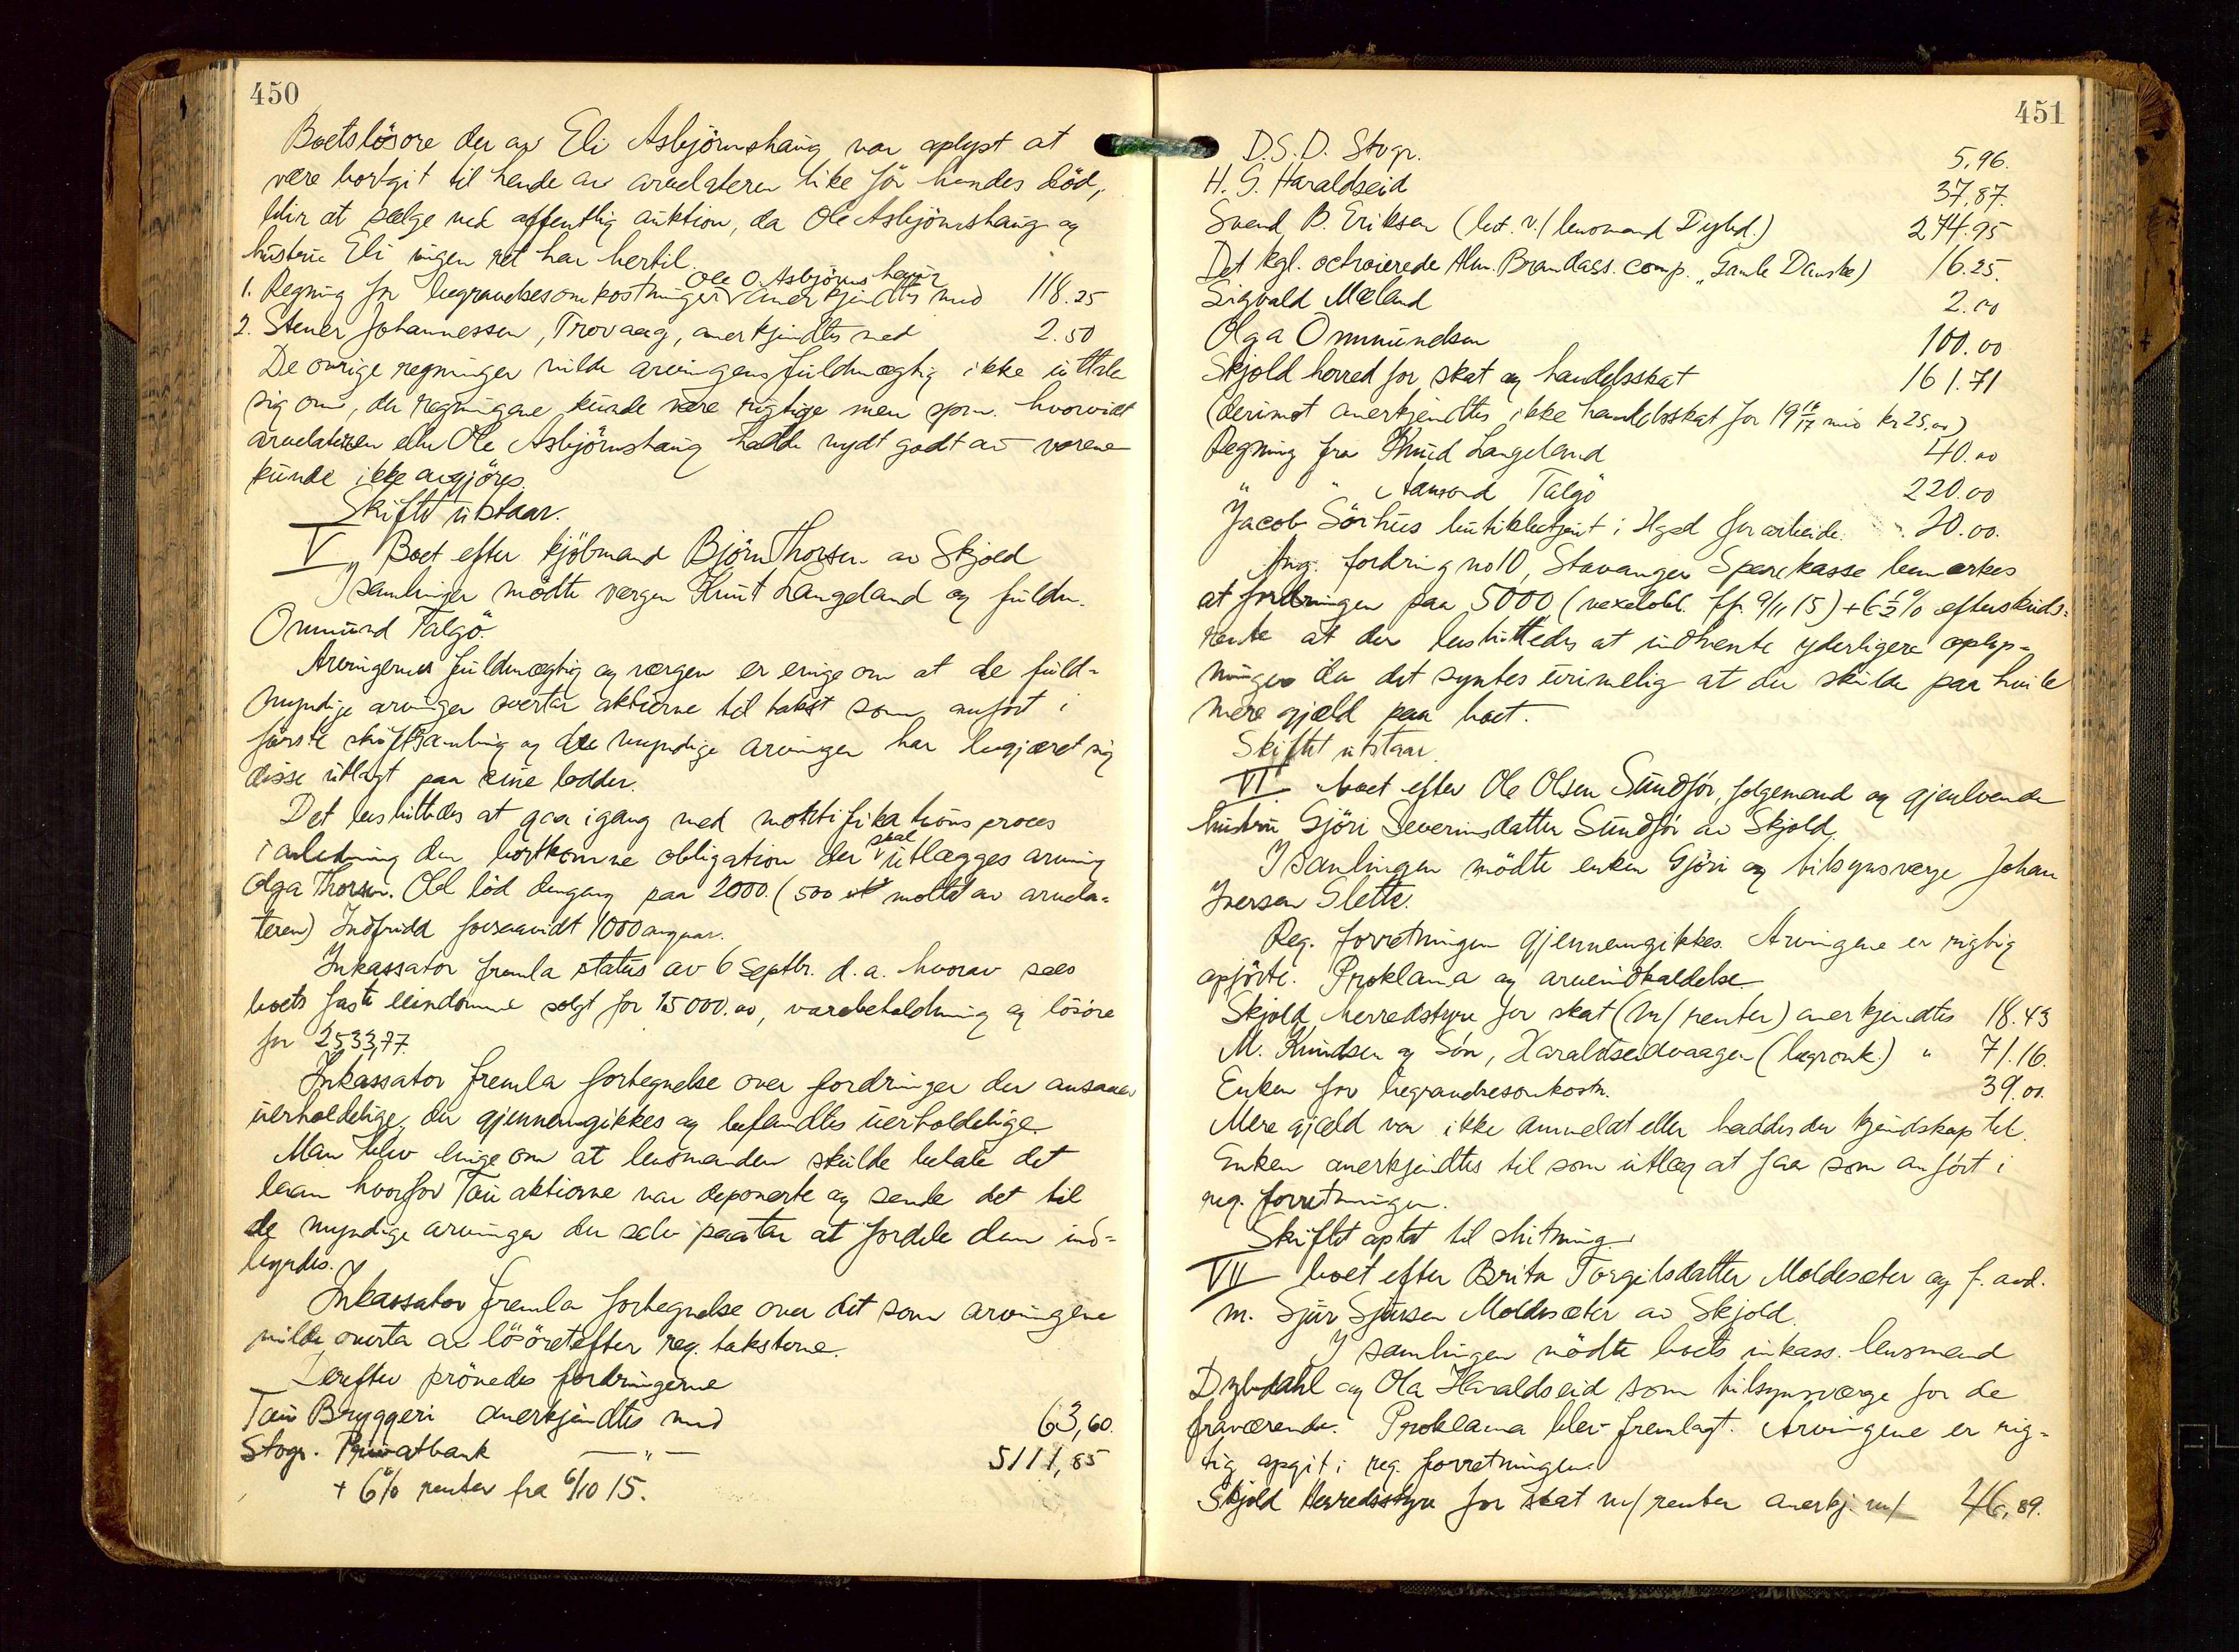 450
Boetslösøre der av Eli Asbjörnshaug var oplyst at
være bortgit til hende av arveladeren like før hendes död,
blir at sælge ved offentlig auktion, da Ole Asbjörnshaug og
hustru Eli ingen ret har hertil.
Ole O. Asbjörnshaug
1. Regning for begravelsesomkostninger anerkjendtes med 118.25
2. Stener Johannessen, Trovaag, anerkjendtes med 2.50
De övrige regninger vilde arvingens fuldmægtig ikke uttale
sig om, da regningene kunde være rigtige men spm. hvorvidt
arveladeren eller Ole Asbjörnshaug hadde nydt godt av varene
kunde ikke avgjöres.
Skiftet utstaar.
V Boet efter kjöbmand Björn Thorsen av Skjold
I samlingen mödte vergen Knut Langeland og fuldm.
Ommund Talgö.
Arvingernes fuldmægtig og vergen er enige om at de fuld-
myndige arvinger overtar aktierne til takst som anfört i
förste skiftesamling og de myndige arvinger har begjæret sig
disse utlagt paa sine lodder.
Det besluttedes at gaa igang med mortifikations proces
i anledning den bortkomne obligation der skal utlægges arving
Olga Thorsen. Obl löd dengang paa 2000. (500 mottat av arvela-
teren) Indfridd forsaavidt 1000 angaar.
Inkassator fremla status av 6 Septbr. d.a. hvorav sees
boets faste eiendomme solgt for 15000.00, varebeholdning og lösöre
for 2533,77.
Inkassator fremla fortegnelse over fordringer der ansaaes
uerholdelige, der gjennemgikkes og befandtes uerholdelige.
Man blev enige om at lensmanden skulde betale det
laan hvorfor Tau aktierne var deponerte og sende det til
de myndige arvinger der selv paatar at fordele dem ind-
byrdes.
Inkassator fremla fortegnelse over det som arvingene
vilde overta av lösöret efter reg. taksterne.
Derefter prövedes fordringerne
Tau Bryggeri anerkjendtes med 63,60.
Stvgr. Privatbank — " — 5111,85
+ 6% renter fra 6/10 15.
451
D.S.D. Stvgr. 5.96.
H. G. Haraldseid 37.87.
Svend B. Eriksen (bet. v/ lensmand Dybd.) 274.95
Det kgl. octroierede Alm. Brandass. comp. "Gamle Danske) 16.25.
Sigvald Mæland 2.00
Olga Ommundsen 100.00
Skjold herred for skat og handelsskat 161.71
(derimot anerkjendtes ikke handelsskat for 19 16/17 med kr 25.00)
Regning fra Knud Langeland 40.00
" " Aamond Talgö 220.00
Jacob Sörhus butikbetjent i Hgsd for arbeide 20.00.
Ang. fordring no 10, Stavanger Sparekasse bemerkes
at fordringen paa 5000 (vexelobl. ff. 9/11 15) + 6½% efterskuds-
rente at der besluttedes at indhente yderligere oplys-
ninger da det syntes urimelig at der skulde paahvile
mere gjæld paa boet.
Skiftet utstaar.
VI boet efter Ole Olsen Sundför, folgemand og gjenlevende
hustru Gjöri Severinsdatter Sundför av Skjold.
I samlingen mödte enken Gjöri og tilsynsverge Johan
Iversen Slette.
Reg. forretningen gjennemgikkes. Arvingene er rigtig
opförte. Proklama og arveindkaldelse
Skjold herredstyre for skat (m/ renter) anerkjendtes 18.43
M. Knudsen og Sön, Haraldseidvaagen (begr.omk.) " 71.16.
Enken for begravelsesomkostn. 39.00.
Mere gjæld var ikke anmeldt eller haddes der kjendskap til.
Enken anerkjendtes til som utlæg at faa som anfört i
reg. forretningen.
Skiftet optat til slutning.
VII boet efter Brita Torgilsdatter Moldesæter og f. avd.
m. Sjur Sjursen Moldesæter av Skjold.
I samlingen mödte boets inkass. lensmand
Dybdahl og Ola Haraldseid som tilsynsværge for de
fraværende. Proklama blev fremlagt. Arvingene er rig-
tig opgit i reg. forretningen.
Skjold Herredsstyre for skat m/ renter anerkj. m/ 46,89.